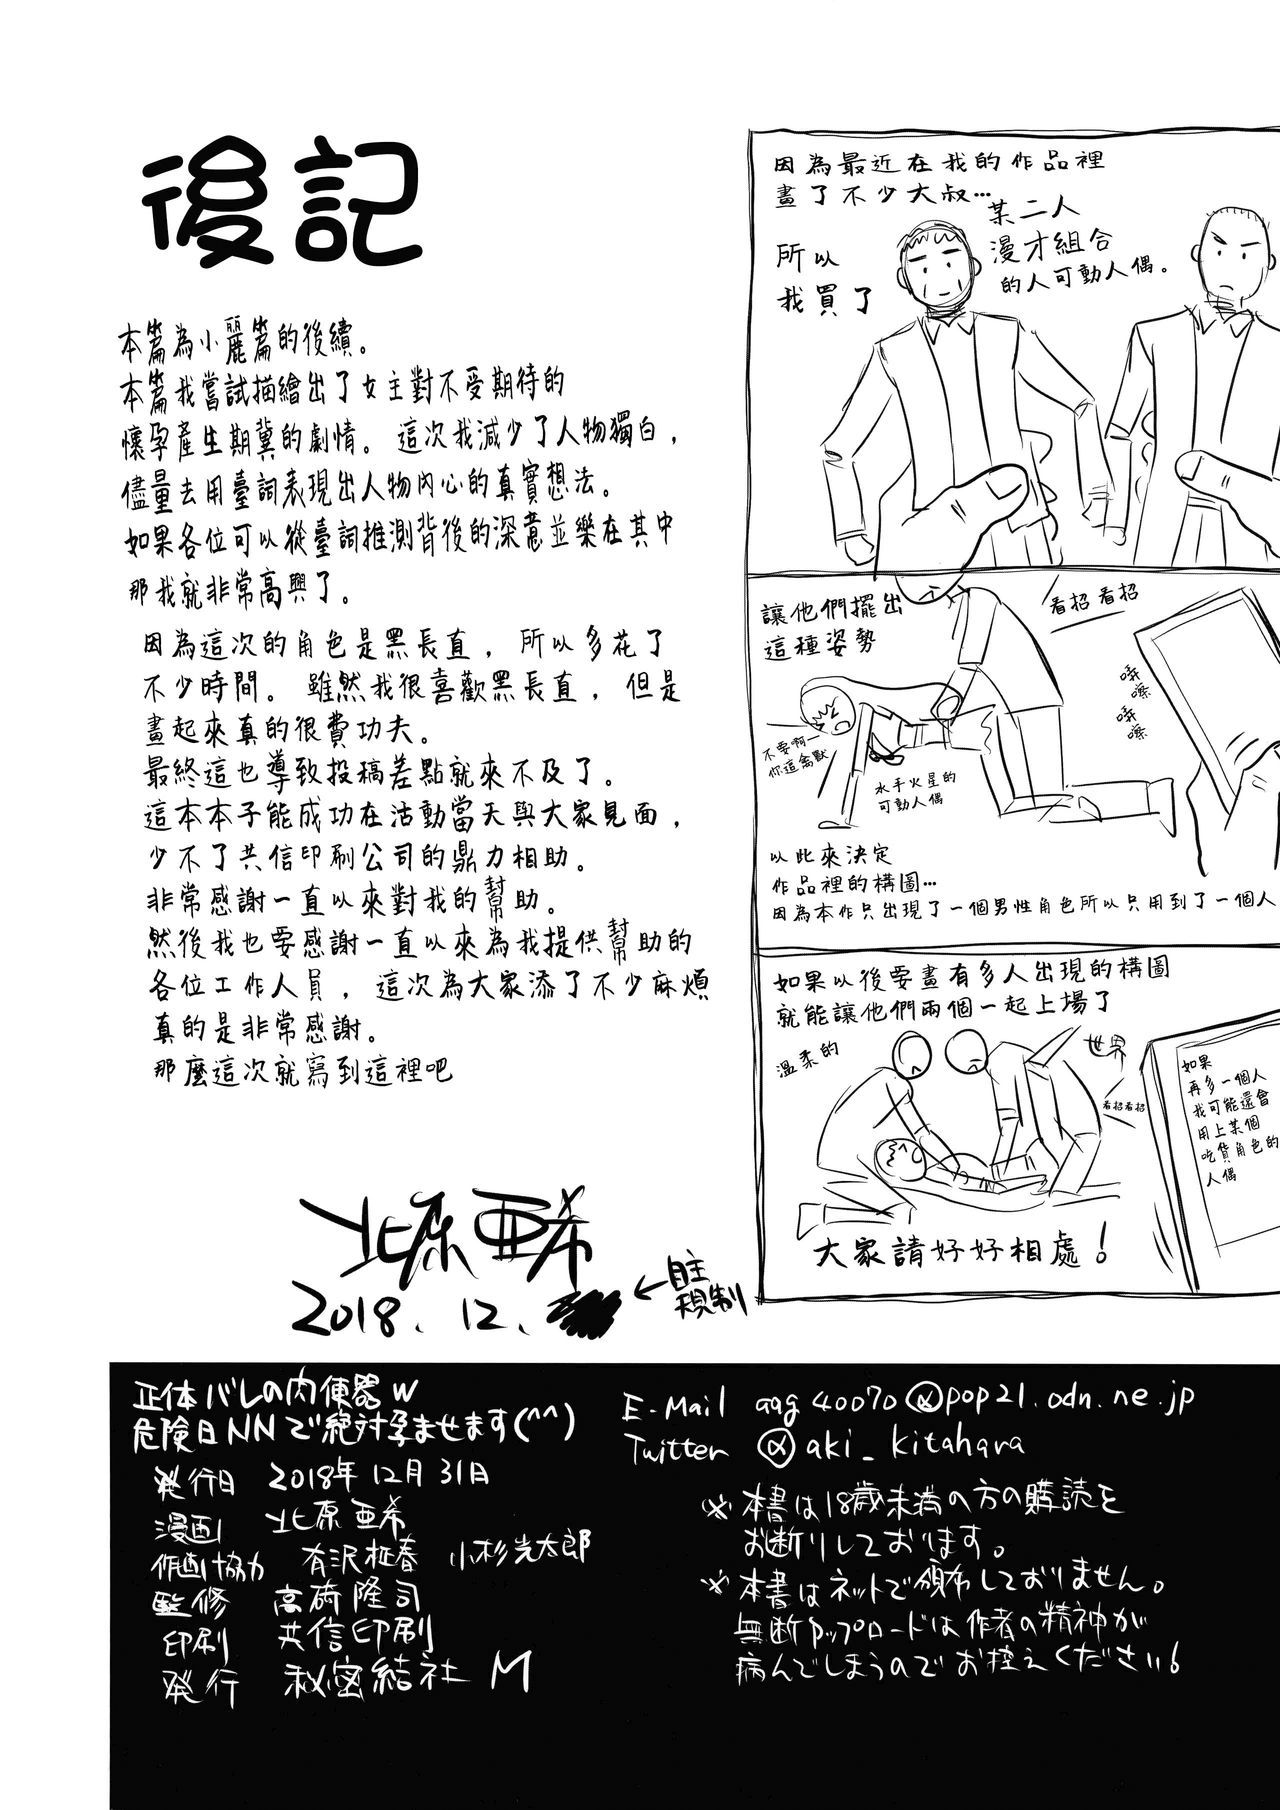 後記
本篇為小麗篇的後續。
本篇我嘗試描繪出了女主對不受期待的
懷孕產生期冀的劇情。這次我減少了人物獨白，
儘量去用臺詞表現出人物內心的真實想法。
如果各位可以從臺詞推測背後的深意並樂在其中
那我就非常高興了。
因為這次的角色是黑長直，所以多花了
不少時間。雖然我很喜歡黑長直，但是
畫起來真的很費功夫。
最終這也導致投稿差點就來不及了。
這本本子能成功在活動當天與大家見面，
少不了共信印刷公司的鼎力相助。
非常感謝一直以來對我的幫助。
然後我也要感謝一直以來為我提供幫助的
各位工作人員，這次為大家添了不少麻煩
真的是非常感謝。
那麼這次就寫到這裡吧
北原亜希
2018.12.
←自主
規制
因為最近在我的作品裡
畫了不少大叔…
所以
我買了
某二人
漫才組合
的人可動人偶。
讓他們擺出
這種姿勢
看招看招
哢嚓
哢嚓
不要啊一
你這禽獸
水手火星的
可動人偶
以此來決定
作品裡的構圖…
因為本作只出現了一個男性角色所以只用到了一個人
如果以後要畫有多人出現的構圖
就能讓他們兩個一起上場了
溫柔的
世界
看招看招
如果
再多一個人
我可能還會
用上某個
吃貨角色的
人偶
大家請好好相處！
正体バレの肉便器w
危険日NNで絶対孕ませます(^^)
発行日 2018年12月31日
漫画 北原亜希
作画協力 有沢柾春 小杉光太郎
監修 高崎隆司
印刷 共信印刷
発行 秘密結社M
E-Mail aag40070@pop21.odn.ne.jp
Twitter @aki_kitahara
※本書は18歳未満の方の購読を
お断りしております。
※本書はネットで頒布しておりません。
無断アップロードは作者の精神が
病んでしまうのでお控えください！